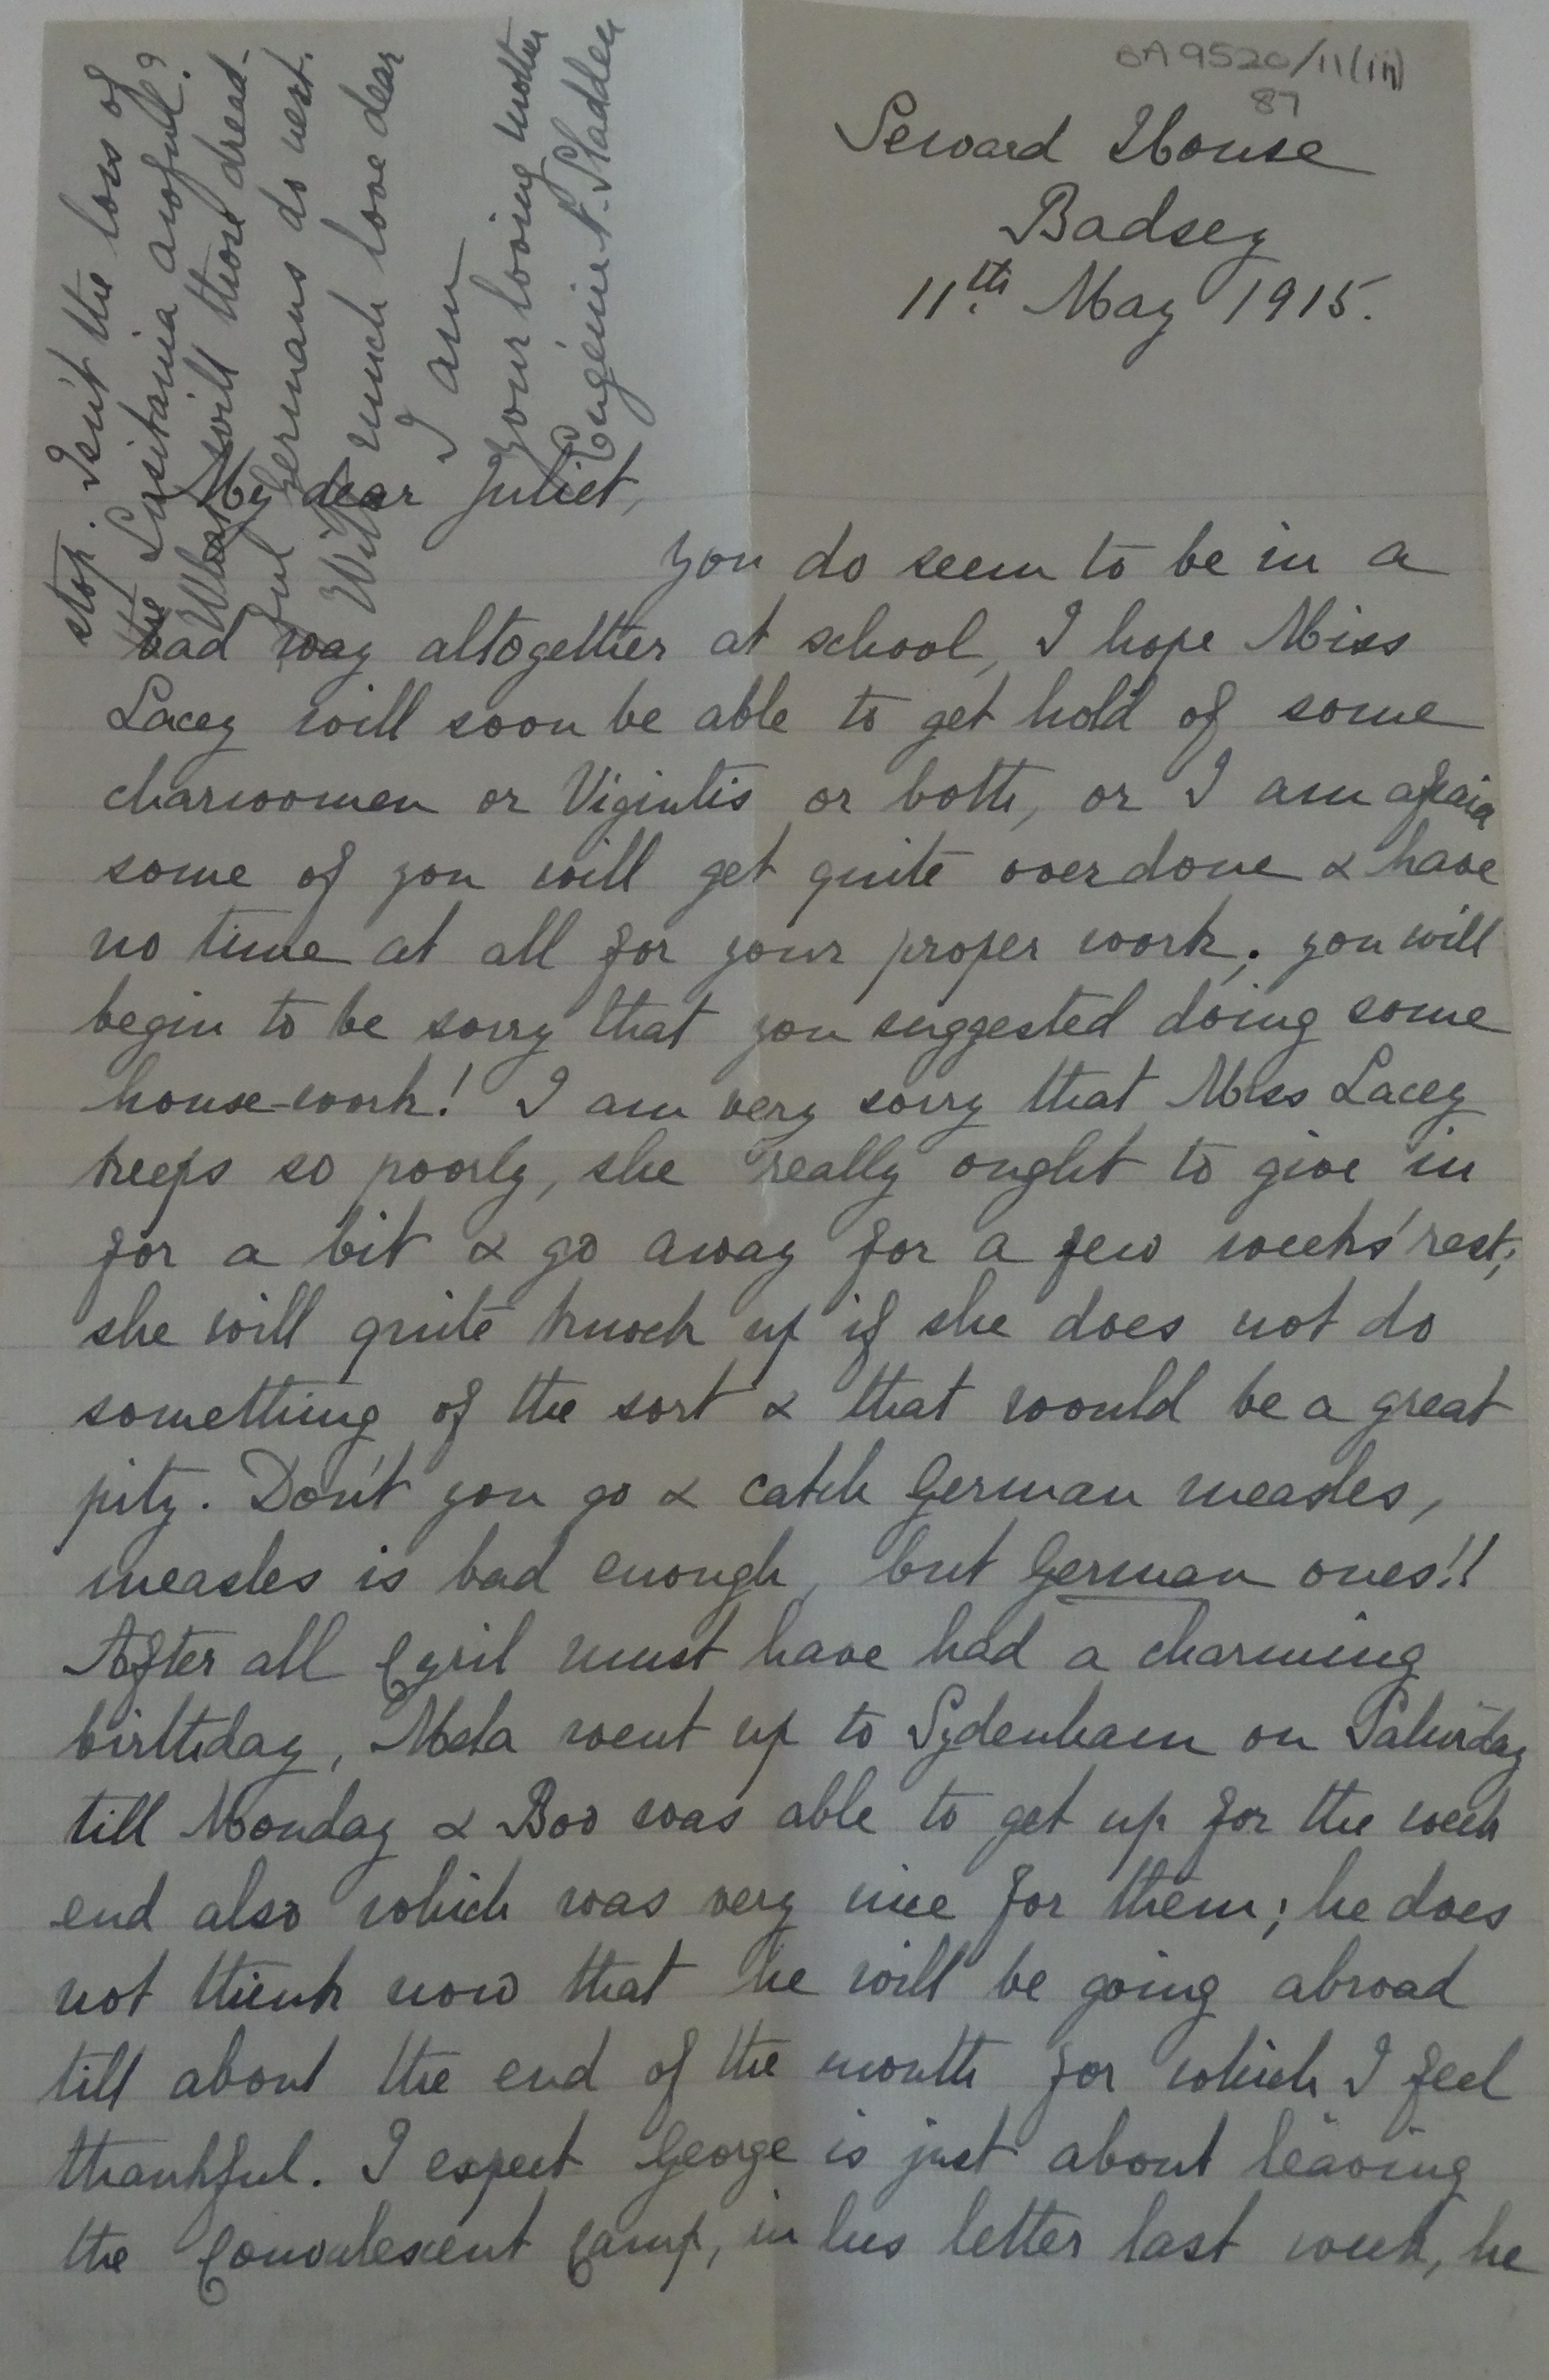 BA 9520/11(iii)
87
Seward House
Badsey
11th May 1915.
My dear Juliet,
you do seem to be in a
bad way altogether at school, I hope Miss
Lacey will soon be able to get hold of some
charwomen or Vigintis or both, or I am afraid
some of you will get quite overdone & have
no time at all for your proper work; you will
begin to be sorry that you suggested doing some
house-work! I am very sorry that Miss Lacey
keeps so poorly, she really ought to give in
for a bit & go away for a few weeks' rest;
she will quite knock up if she does not do
something of the sort & that would be a great
pity. Don't you go & catch German measles,
measles is bad enough, but German ones!!
After all Cyril must have had a charming
birthday, Mela went up to Sydenham on Saturday
till Monday & Boo was able to get up for the week
end also which was very nice for them; he does
not think now that he will be going abroad
till about the end of the month for which I feel
thankful. I expect George is just about leaving
the Convalescent Camp, in his letter last week, he
stop. Isn't the loss of
the Lusitania awful?
What will those dread-
ful Germans do next.
With much love dear
I am
Your loving mother
Eugénie N. Sladden